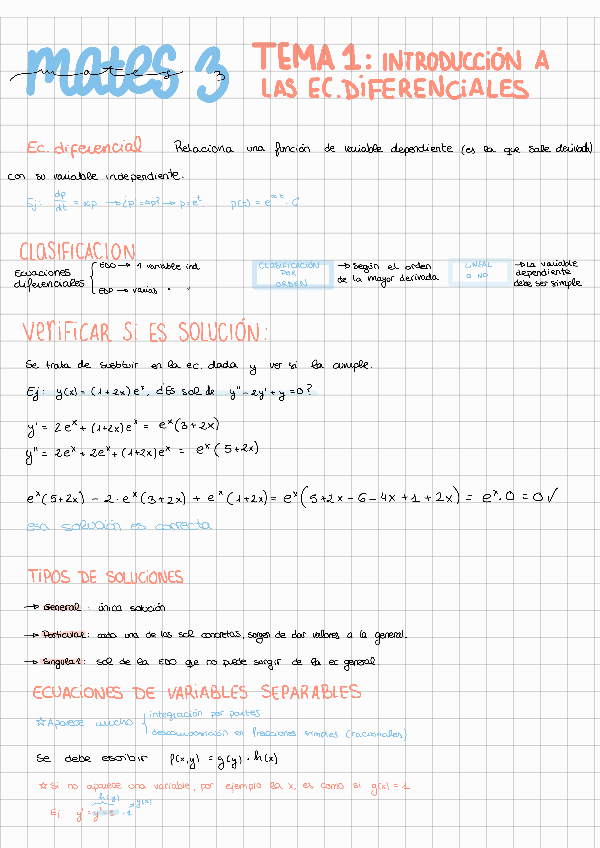 mates 3
mates 3
TEMA 1: INTRODUCCIÓN A
LAS EC. DIFERENCIALES
Ec. diferencial Relaciona una función de variable dependiente (es la que sale derivada)
con su variable independiente.
Ej: dp/dt = αp
p(t) = e^αt · C
CLASIFICACION
Ecuaciones diferenciales { EDO → 1 variable ind.
EDP → varias " "
CLASIFICACIÓN POR ORDEN → Según el orden de la mayor derivada
LINEAL O NO → La variable dependiente debe ser simple
Verificar si es solución:
Se trata de sustituir en la ec. dada y ver si la cumple.
Ej: y(x) = (1+2x)e^x, ¿Es sol de y'' - 2y' + y = 0?
y' = 2e^x + (1+2x)e^x = e^x(3+2x)
y'' = 2e^x + 2e^x + (1+2x)e^x = e^x(5+2x)
e^x(5+2x) - 2·e^x(3+2x) + e^x(1+2x) = e^x(5+2x-6-4x+1+2x) = e^x·0 = 0 ✓
esa solución es correcta
TIPOS DE SOLUCIONES
→ General: única solución
→ Particular: cada una de las sol concretas, surgen de dar valores a la general.
→ Singular: sol de la EDO que no puede surgir de la ec general.
ECUACIONES DE VARIABLES SEPARABLES
☆ Aparece mucho { integración por partes
descomposición en fracciones simples (racionales)
Se debe escribir f(x,y) = g(y) · h(x)
☆ Si no aparece una variable, por ejemplo la x, es como si g(x) = 1
h(y)
g(x)
Ej y' = y² - 1 · 1